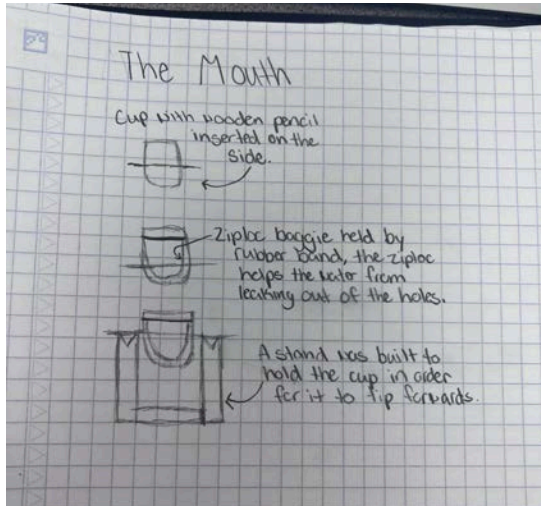 The Mouth
Cup with wooden pencil
inserted on the
side.
Ziploc baggie held by
rubber band, the ziploc
helps the water from
leaking out of the holes.
A stand was built to
hold the cup in order
for it to tip forwards.